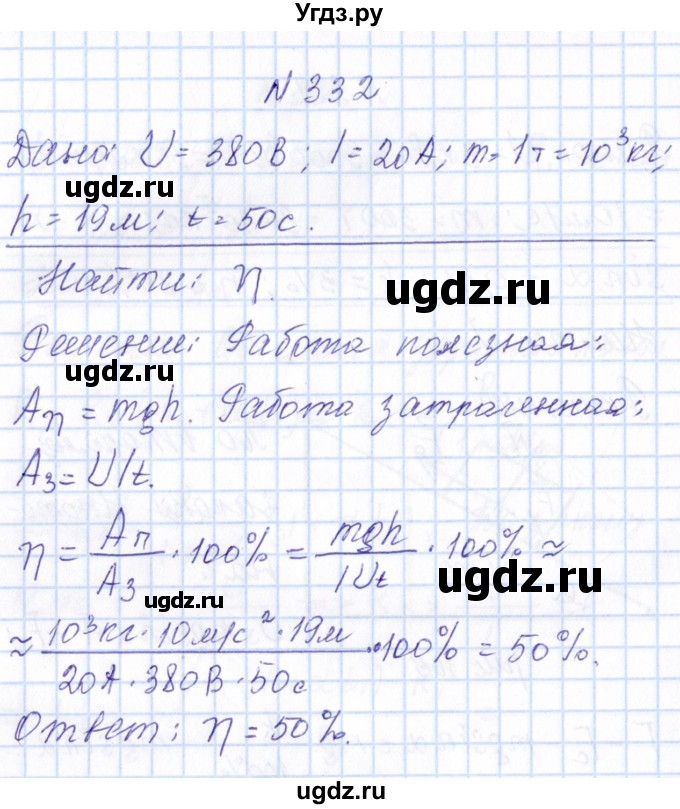 Угдз.ру
N 332
Дано: U = 380В; I = 20А; m = 1т = 10³кг;
ugdz.ru
h = 19м; t = 50с.
Найти: η.
ugdz.ru
Решение: Работа полезная:
ugdz.ru
Aп = mgh. Работа затраченная:
Aз = UIt.
η = Aп/Aз · 100% = mgh/IUt · 100% ≈
ugdz.ru
ugdz.ru
≈ 10³кг · 10м/с² · 19м / 20А · 380В · 50с · 100% = 50%.
Ответ: η = 50%.
ugdz.ru
ugdz.ru